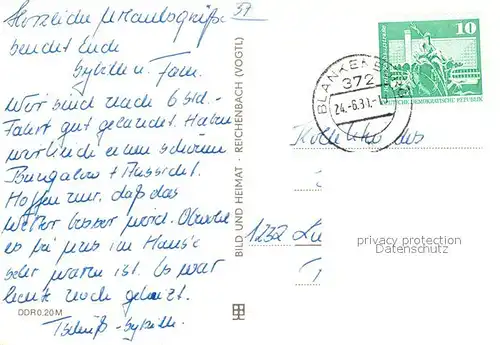 Herzliche Urlaubsgrüße
sendet Euch
Sybille u. Fam.
Wir sind nach 6 Std.-
Fahrt gut gelandet. Haben
wirklich einen schönen
Bungalow + Aussicht.
Hoffen nur, daß das
Wetter besser wird. Obwohl
es bei uns im Haus
sehr warm ist. Es war
heute noch geheizt.
Tschüß - Sybille.
DDR 0,20 M
BILD UND HEIMAT · REICHENBACH (VOGTL)
BLANKENB
372
24.-6.81.-
10
DEUTSCHE DEMOKRATISCHE REPUBLIK
1232
privacy protection
Datenschutz